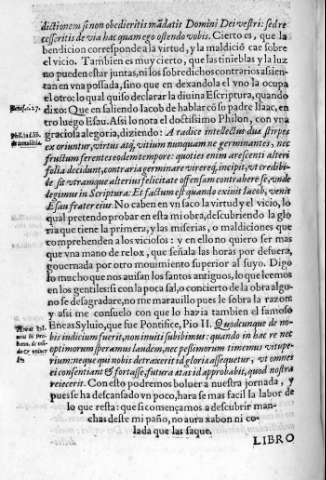 dictionem si non obedieritis mãdatis Domini Dei vestri: sed re
cesseritis de via hac quam ego ostendo vobis. Cierto es, que la
bendicion corresponde a la virtud, y la maldiciõ cae sobre
el vicio. Tambien es muy cierto, que las tinieblas y la luz
no pueden estar juntas, ni los sobredichos contrarios assien-
tan en vna possada, sino que en dexandola el vno la ocupa
el otro: lo qual quiso declarar la diuina Escriptura, quando
dixo: Que en saliendo Iacob de hablar cõ su padre Isaac, en-
tro luego Esau. Assi lo nota el doctissimo Philon, con vna
graciosa alegoria, diziendo: A radice intellectus duæ stirpes
exoriuntur, virtus atq́; vitium nunquam ne germinantes, nec
fructum ferentes eodem tempore: quoties enim arescenti alteri
folia decidunt, contraria germinare virere q́; incipit, vt credibi-
le sit vtramque alterius felicitate offensam contrabere se, vnde
legimus in Scriptura: Et factum est quando exiuit Iacob, venit
Esau frater eius. No caben en vn saco la virtud y el vicio, lo
qual pretendo probar en esta mi obra, descubriendo la glo
ria que tiene la primera, y las miserias, o maldiciones que
comprehenden a los viciosos: y en ello no quiero ser mas
que vna mano de relox, que señala las horas por defuera,
gouernada por otro mouimiento superior al suyo. Digo
lo mucho que nos auisan los santos antiguos, lo que leemos
en los gentiles: si con la poca sal, o concierto de la obra algu-
no se desagradare, no me marauillo pues le sobra la razon
y assi me consuelo con que lo hazia tambien el famoso
Eneas Syluio, que fue Pontifice, Pio II. Quodcunque de no-
bis iudicium fuerit, non inuiti subibimus: quando in hac re nec
optimorum speramus laudem, nec pessimorum timemus vitupe-
rium: neque qui nobis detraxerit id gloria assequetur, vt omnes
ei consentiant & fortasse, futura ætas id approbabit, quod nostra
reiecerit. Con esto podremos boluer a nuestra jornada, y
pues se ha descansado vn poco, hara se mas facil la labor de
lo que resta: que si començamos a descubrir man-
chas deste mi paño, no aura xabon ni co-
lada que las saque.
LIBRO
Genesi. 27.